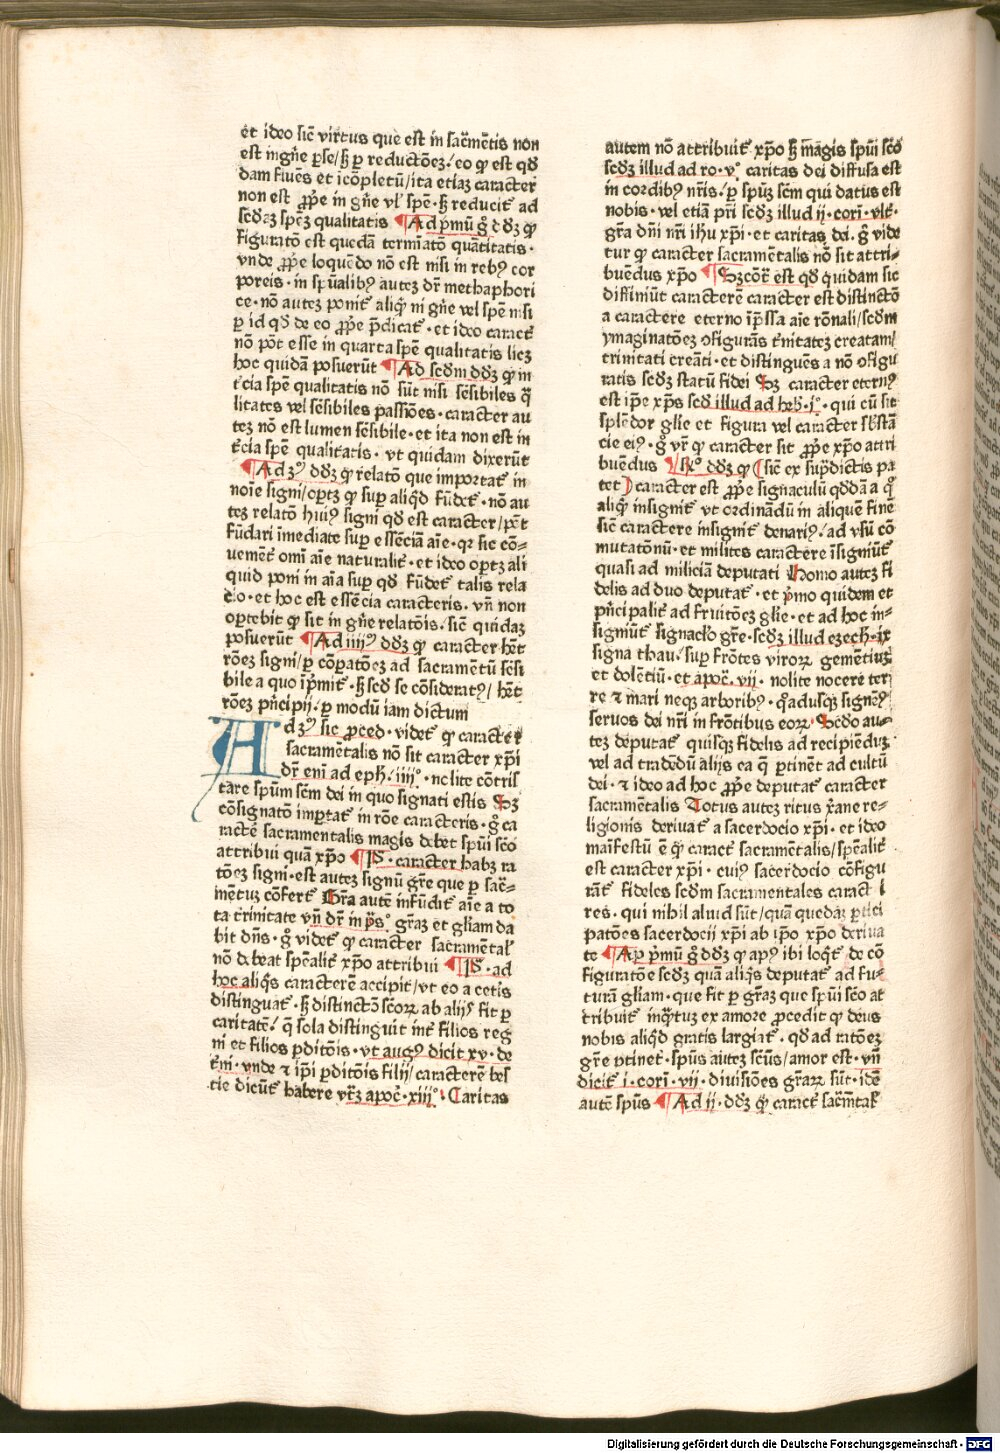 et ideo sic̄ virtus que est in sacr̄mētis non
est ingn̄e ꝑse/ ꝫ ꝑ reductōeꝫ/ eo ꝙ est qd̄
dam fluēs et icōpletū/ ita etiaꝫ caracter
non est ꝓpͤ in gn̄e vl' spē· ꝫ reducit̄ ad
scd̄aꝫ spēꝫ qualitatis ¶ Ad pͥmū gͦ dd̄ꝫ ꝙ
figuratō est quedā termīatō quātitatis·
vnde ꝓpͤ loquēdo nō est nisi in rebꝰ cor
poreis· in spūalibꝰ auteꝫ dr̄ methaphori
ce· nō auteꝫ ponit̄ aliqͥ in gn̄e vel spē nisi
ꝑ id qd̄ de eo ꝓpͤ p̄dicat̄· et ideo caract̄
nō pōt esse in quarta spē qualitatis licꝫ
hoc quidā posuerūt ¶ Ad scd̄m dd̄ꝫ ꝙ in
t̄cia spē qualitatis nō sūt nisi sēsibiles q̄
litates vel sēsibiles passiōes· caracter au
teꝫ nō est lumen sēsibile· et ita non est in
t̄cia spē qualitatis· vt quidam dixerūt
¶ Ad ꝫꝰ dd̄ꝫ ꝙ relatō que importat̄ in
noīe signi/ oꝑtꝫ ꝙ suꝑ aliqd̄ fūdet̄· nō au
teꝫ relatō huiꝰ signi qd̄ est caracter/ pōt
fūdari īmediate suꝑ essēciā aīe· qꝛ sic cō-
uemēt̄ omī aīe naturalit̄· et ideo oꝑtꝫ ali
quid poni in aīa suꝑ qd̄ fūdet̄ talis rela
tio· et hoc est essēcia caracteris· vn̄ non
oportebit ꝙ sit in gn̄e relatōis· sic̄ quidaꝫ
posuerūt ¶ Ad iiiiꝰ dd̄ꝫ ꝙ caracter hēt
rōeꝫ signi/ ꝑ cōꝑatōeꝫ ad sacramētū sēsi
bile a quo ip̄mit̄· ꝫ scd̄ se cōsideratꝰ/ hēt
rōeꝫ pͥncipij/ ꝑ modū iam dictum
Ad ꝫꝰ sic ꝓced· videt̄ ꝙ caracter
sacramētalis nō sit caracter xp̄i
dr̄ enī ad eph· iiii°· nolite cōtris
tare spūm scm̄ dei in quo signati estis Sꝫ
cōsignatō importat̄ in rōe caracteris· gͦ ca
ractē sacramentalis magis debet spūi scō
attribui quā xp̄o ¶ Iꝑ· caracter habꝫ ra
tōeꝫ signi· est auteꝫ signū gr̄e que ꝑ sacr̄-
mētuꝫ cōfert̄ Gr̄a autē īfūdit̄ aīe a to
ta trinitate vn̄ dr̄ in pͥs°· gr̄aꝫ et gl̄iam da
bit dn̄s· gͦ videt̄ ꝙ caracter sacramētal'
nō debeat spēalit̄ xp̄o attribui ¶ Iꝑ· ad
hoc aliqͥs caracterē accipit/ vt eo a cetis
distinguat̄· ꝫ distinctō scōꝝ ab alijs fit ꝑ
caritatē/ q̄ sola distinguit int̄ filios reg
ni et filios ꝑditōis· vt augꝰ dicit xv· de
t̄ni· vnde ⁊ ip̄i ꝑditōis filij/ caracterē bes
tie dicūt̄ habere vt̄ꝫ apoc̄· xiii°· Caritas
autem nō attribuit̄ xp̄o ꝫ magis spūi scō
scd̄ꝫ illud ad ro· v°· caritas dei diffusa est
in cordibꝰ nr̄is/ ꝑ spūꝫ scm̄ qui datus est
nobis· vel etiā pr̄i scd̄ꝫ illud ij· cori· vlt̄·
gr̄a dn̄i nr̄i ihū xp̄i· et caritas dei· gͦ vide
tur ꝙ caracter sacramētalis nō sit attri-
buēdus xp̄o ¶ Sꝫcōt̄ est qd̄ quidam sic
diffiniūt caracterē caracter est distinctō
a caractere eterno īp̄ssa aīe rōnali/ scd̄m
ymaginatōeꝫ ꝯfigurās t̄nitateꝫ creatam/
trinitati creāti· et distinguēs a nō ꝯfigu
ratis scd̄ꝫ statū fidei Sꝫ caracter eternꝰ
est ip̄e xp̄s scd̄ illud ad heb· i°· qui cū sit
splēdor gl̄ie et figura vel caracter sb̄stā
cie eiꝰ· gͦ vr̄ ꝙ caracter sit ꝓpͤ xp̄o attri
buēdus ¶ Rͦ dd̄ꝫ ꝙ sic̄ ex sup̄dictis pa
tet caracter est ꝓpͤ signaculū qd̄dā a qͦ
aliqͥ insignit̄ vt ordinādū in aliquē finē
sic̄ caractere insignit̄ denariꝰ/ ad vsū cō
mutatōnū· et milites caractere īsigniūt̄
quasi ad miliciā deputati Homo auteꝫ fi
delis ad duo deputat̄· et pͥmo quidem et
pͥncipalit̄ ad fruitōeꝫ gl̄ie· et ad hoc in-
signiūt̄ signaclo gr̄e· scd̄ꝫ illud eꝫech· ix
signa thau/ suꝑ frōtes viroꝝ gemētiuꝫ
et dolētiū· et apoc̄· vii· nolite nocere ter
re ⁊ mari neqꝫ arboribꝰ· qͦadusqꝫ signēꝰ
seruos dei nr̄i in frōtibus eoꝝ· Scd̄o au-
teꝫ deputat̄ quisqꝫ fidelis ad recipiēduꝫ
vel ad tradēdū alijs ea q̄ ꝑtinēt ad cultū
dei· ⁊ ideo ad hoc ꝓpͤ deputat̄ caracter
sacramētalis Totus auteꝫ ritus xr̄ane re-
ligionis deriuat̄ a sacerdocio xp̄i· et ideo
maīfestū ē ꝙ caract̄ sacramētalis/ spēalit̄
est caracter xp̄i· cuiꝰ sacerdocio cōfigu
rāt̄ fideles scd̄m sacramentales caract i
res· qui nihil aliud sūt/ quā quedaꝫ ꝑtici
patōes sacerdocij xp̄i ab ip̄o xp̄o deriua
te ¶ Ad pͥmū gͦ dd̄ꝫ ꝙ apꝰ ibi loqͥt̄ de cō
figuratōe scd̄ꝫ quā aliqͥs deputat̄ ad fu-
turā gl̄iam· que fit ꝑ gr̄aꝫ que spūi scō at
tribuit̄ inqͣtuꝫ ex amore ꝓcedit ꝙ deus
nobis aliqd̄ gratis largiat̄· qd̄ ad ratōeꝫ
gr̄e ꝑtinet· spūs auteꝫ scūs/ amor est· vn̄
dicit̄ i· cori· vii· diuisiōes gr̄aꝝ sūt· idē
autē spūs ¶ Ad ij· dd̄ꝫ ꝙ caract̄ sacr̄mtal'
Digitalisierung gefördert durch die Deutsche Forschungsgemeinschaft - DFG